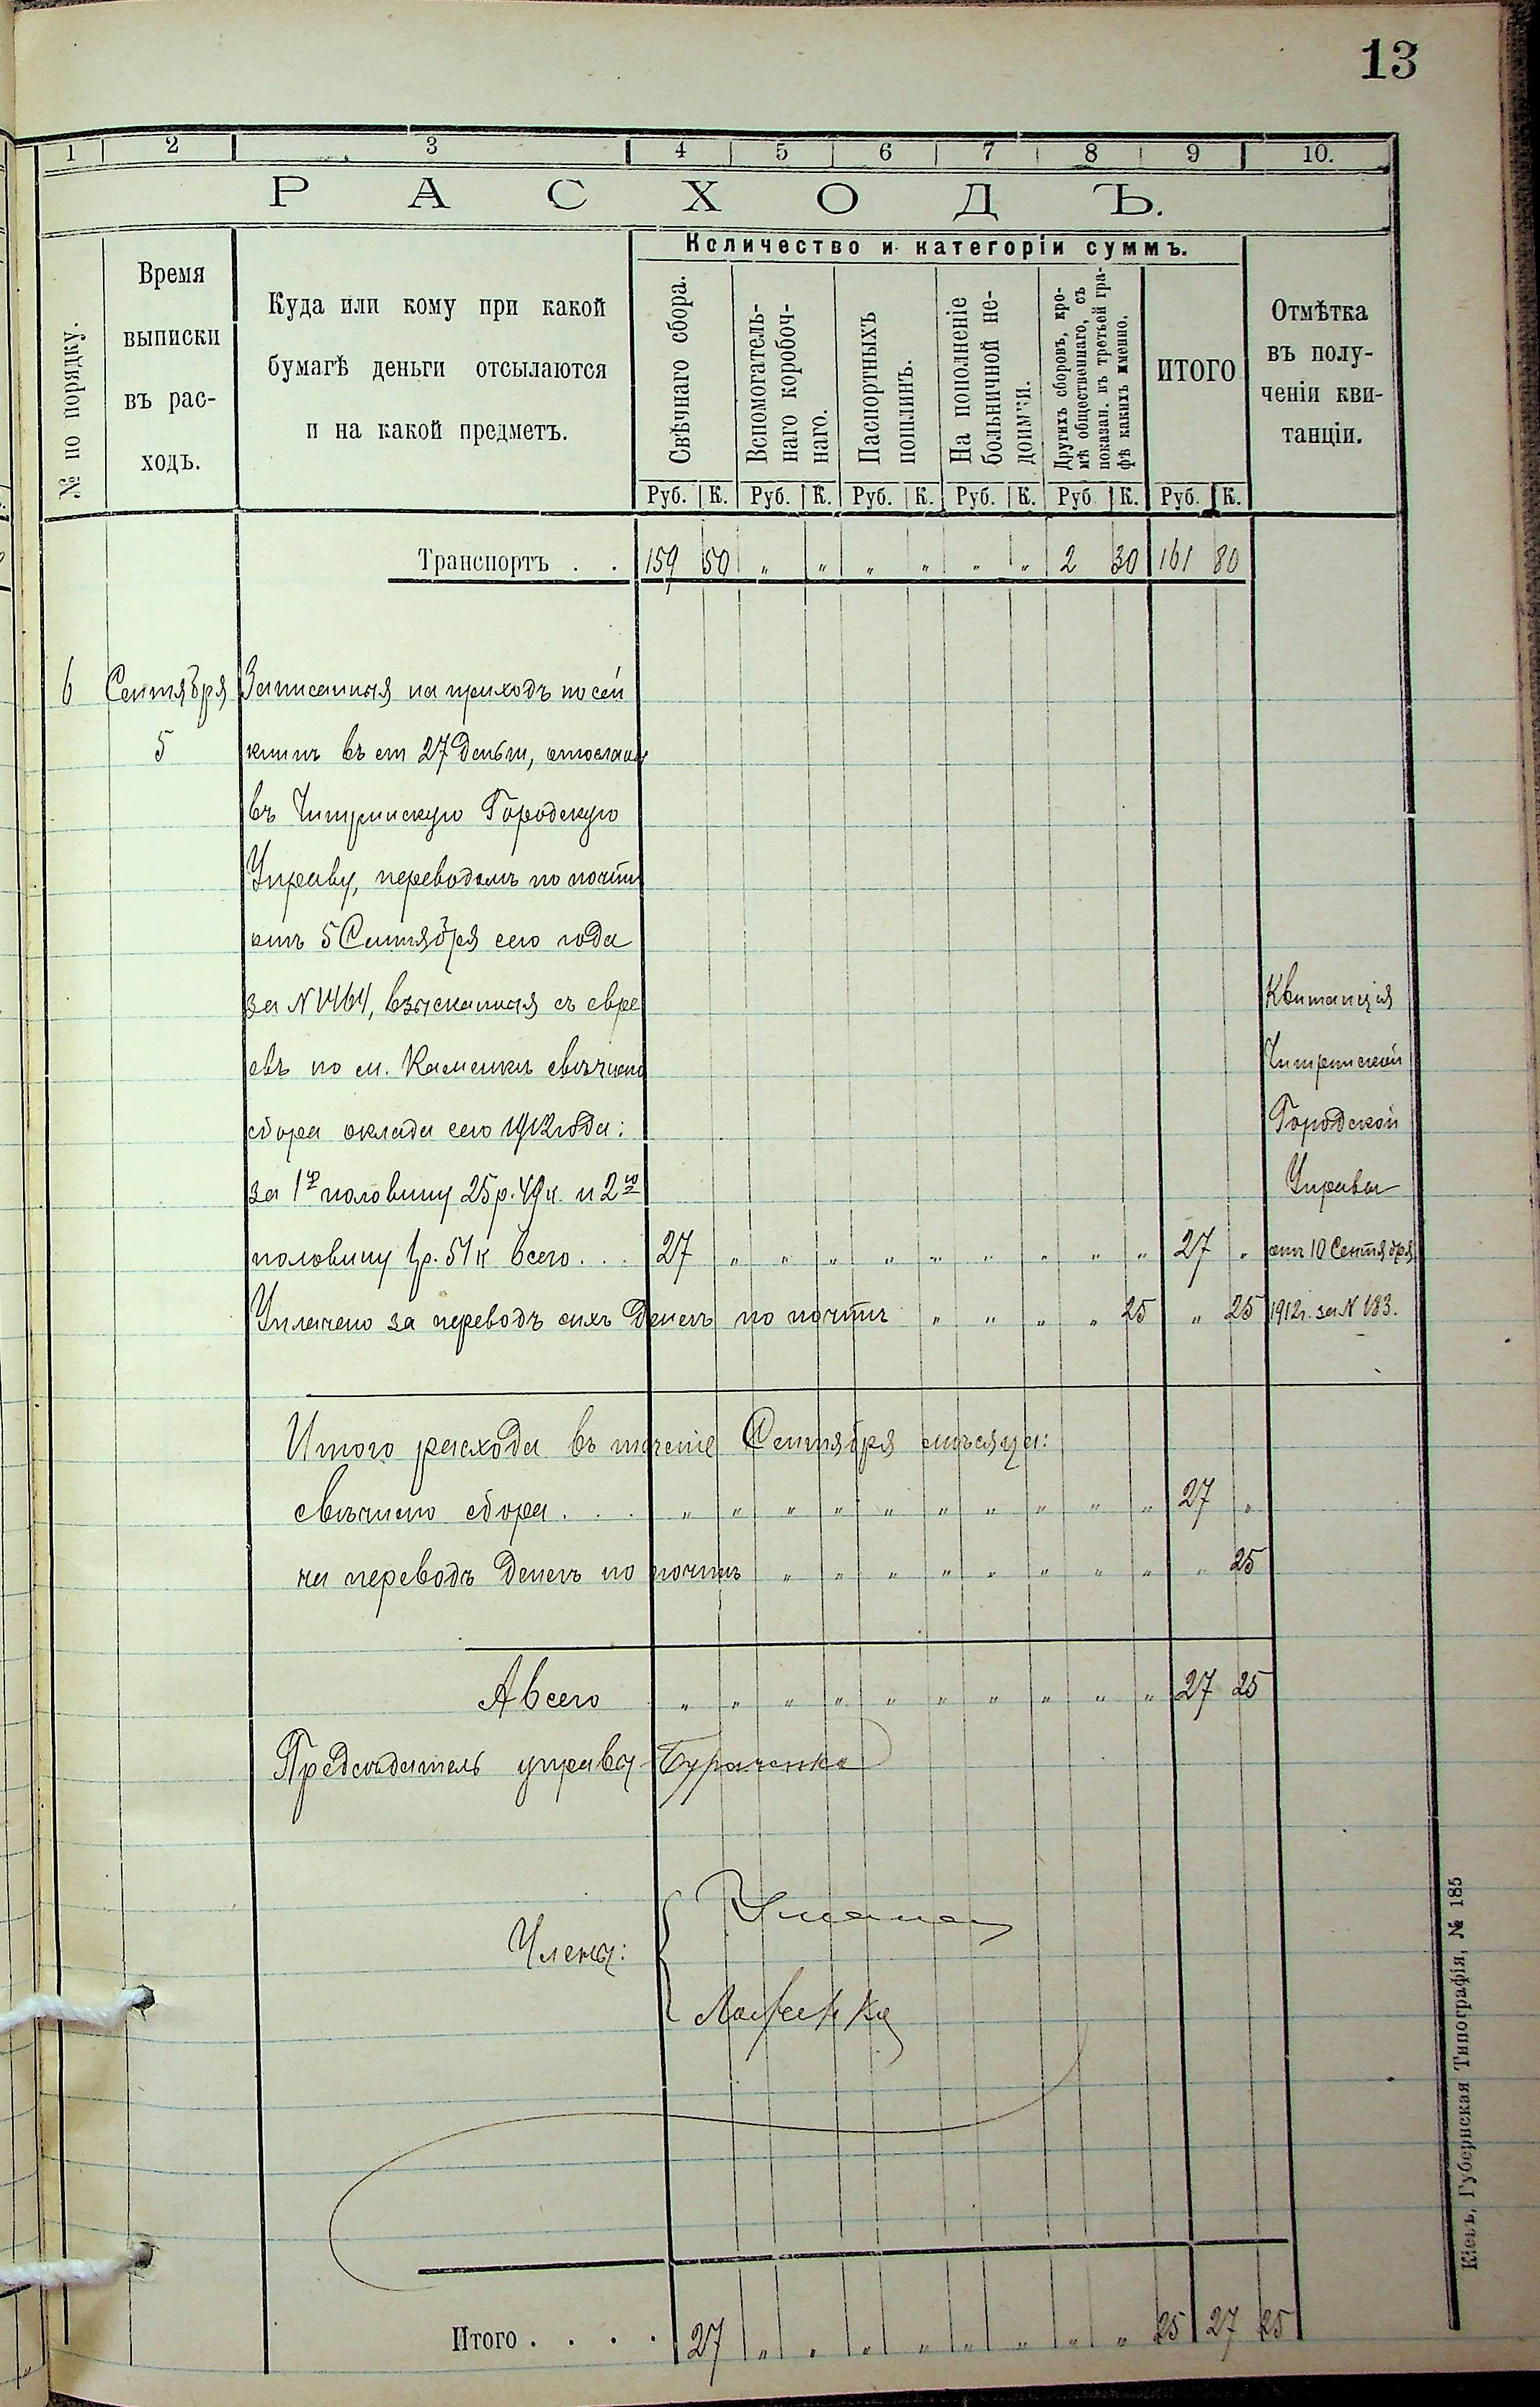 13
1 2 3 4 5 6 7 8 9 10.
РАСХОДЪ.
№ по порядку.
Время выписки въ рас-ходъ.
Куда или кому при какой
бумагѣ деньги отсылаются
и на какой предметъ.
Количество и категоріи суммъ.
Свѣчнаго сбора.
Вспомогатель-
наго коробоч-
наго.
Паспортныхъ
пошлинъ.
На пополненіе
больничной не-
доимки.
Другихъ сборовъ, кро-
мѣ общественнаго, съ
показан. въ третьей гра-
фѣ какихъ именно.
ИТОГО
Отмѣтка
въ полу-
ченіи кви-
танціи.
Руб. К. Руб. К. Руб. К. Руб. К. Руб К. Руб. К.
Транспортъ . . 159 50 „ „ „ „ „ „ 2 30 161 80
6 Сентября Записанныя на приходъ по сей
5 книгѣ въ ст 27 деньги, отосланы
въ Чигринскую Городскую
Управу, переводомъ по почтѣ
отъ 5 Сентября сего года
за № 1464, взысканныя съ евре
евъ по м. Каменкѣ свѣчнаго
сбора оклада сего 1912 года:
за 1ю половину 25 р. 49 к. и 2ю
половину 1 р. 51 к всего . . . 27 „ „ „ „ „ „ „ „ „ 27 „
Уплачено за переводъ сихъ денегъ по почтѣ „ „ „ „ 25 „ 25
Квитанція
Чигринской
Городской
Управы
отъ 10 Сентября
1912 г. за № 183.
Итого расхода въ теченіе Сентября мѣсяца:
свѣчнаго сбора . . . „ „ „ „ „ „ „ „ „ „ 27 „
на переводъ денегъ по почтѣ „ „ „ „ „ „ „ „ „ 25
А всего „ „ „ „ „ „ „ „ „ „ 27 25
Предсѣдатель управы Бураченко
Члены:
Итого . . . . 27 „ „ „ „ „ „ „ „ 25 27 25
Кіевъ, Губернская Типографія, № 185